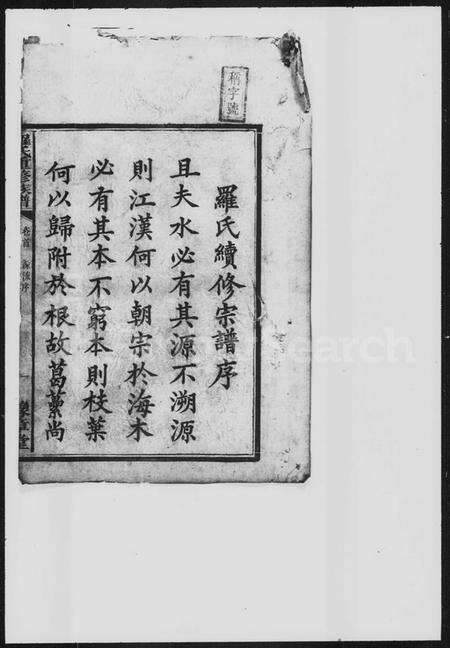 羅氏續修宗譜序
且夫水必有其源不溯源
則江漢何以朝宗於海木
必有其本不窮本則枝葉
何以歸附於根故葛藟尚
字號
卷首